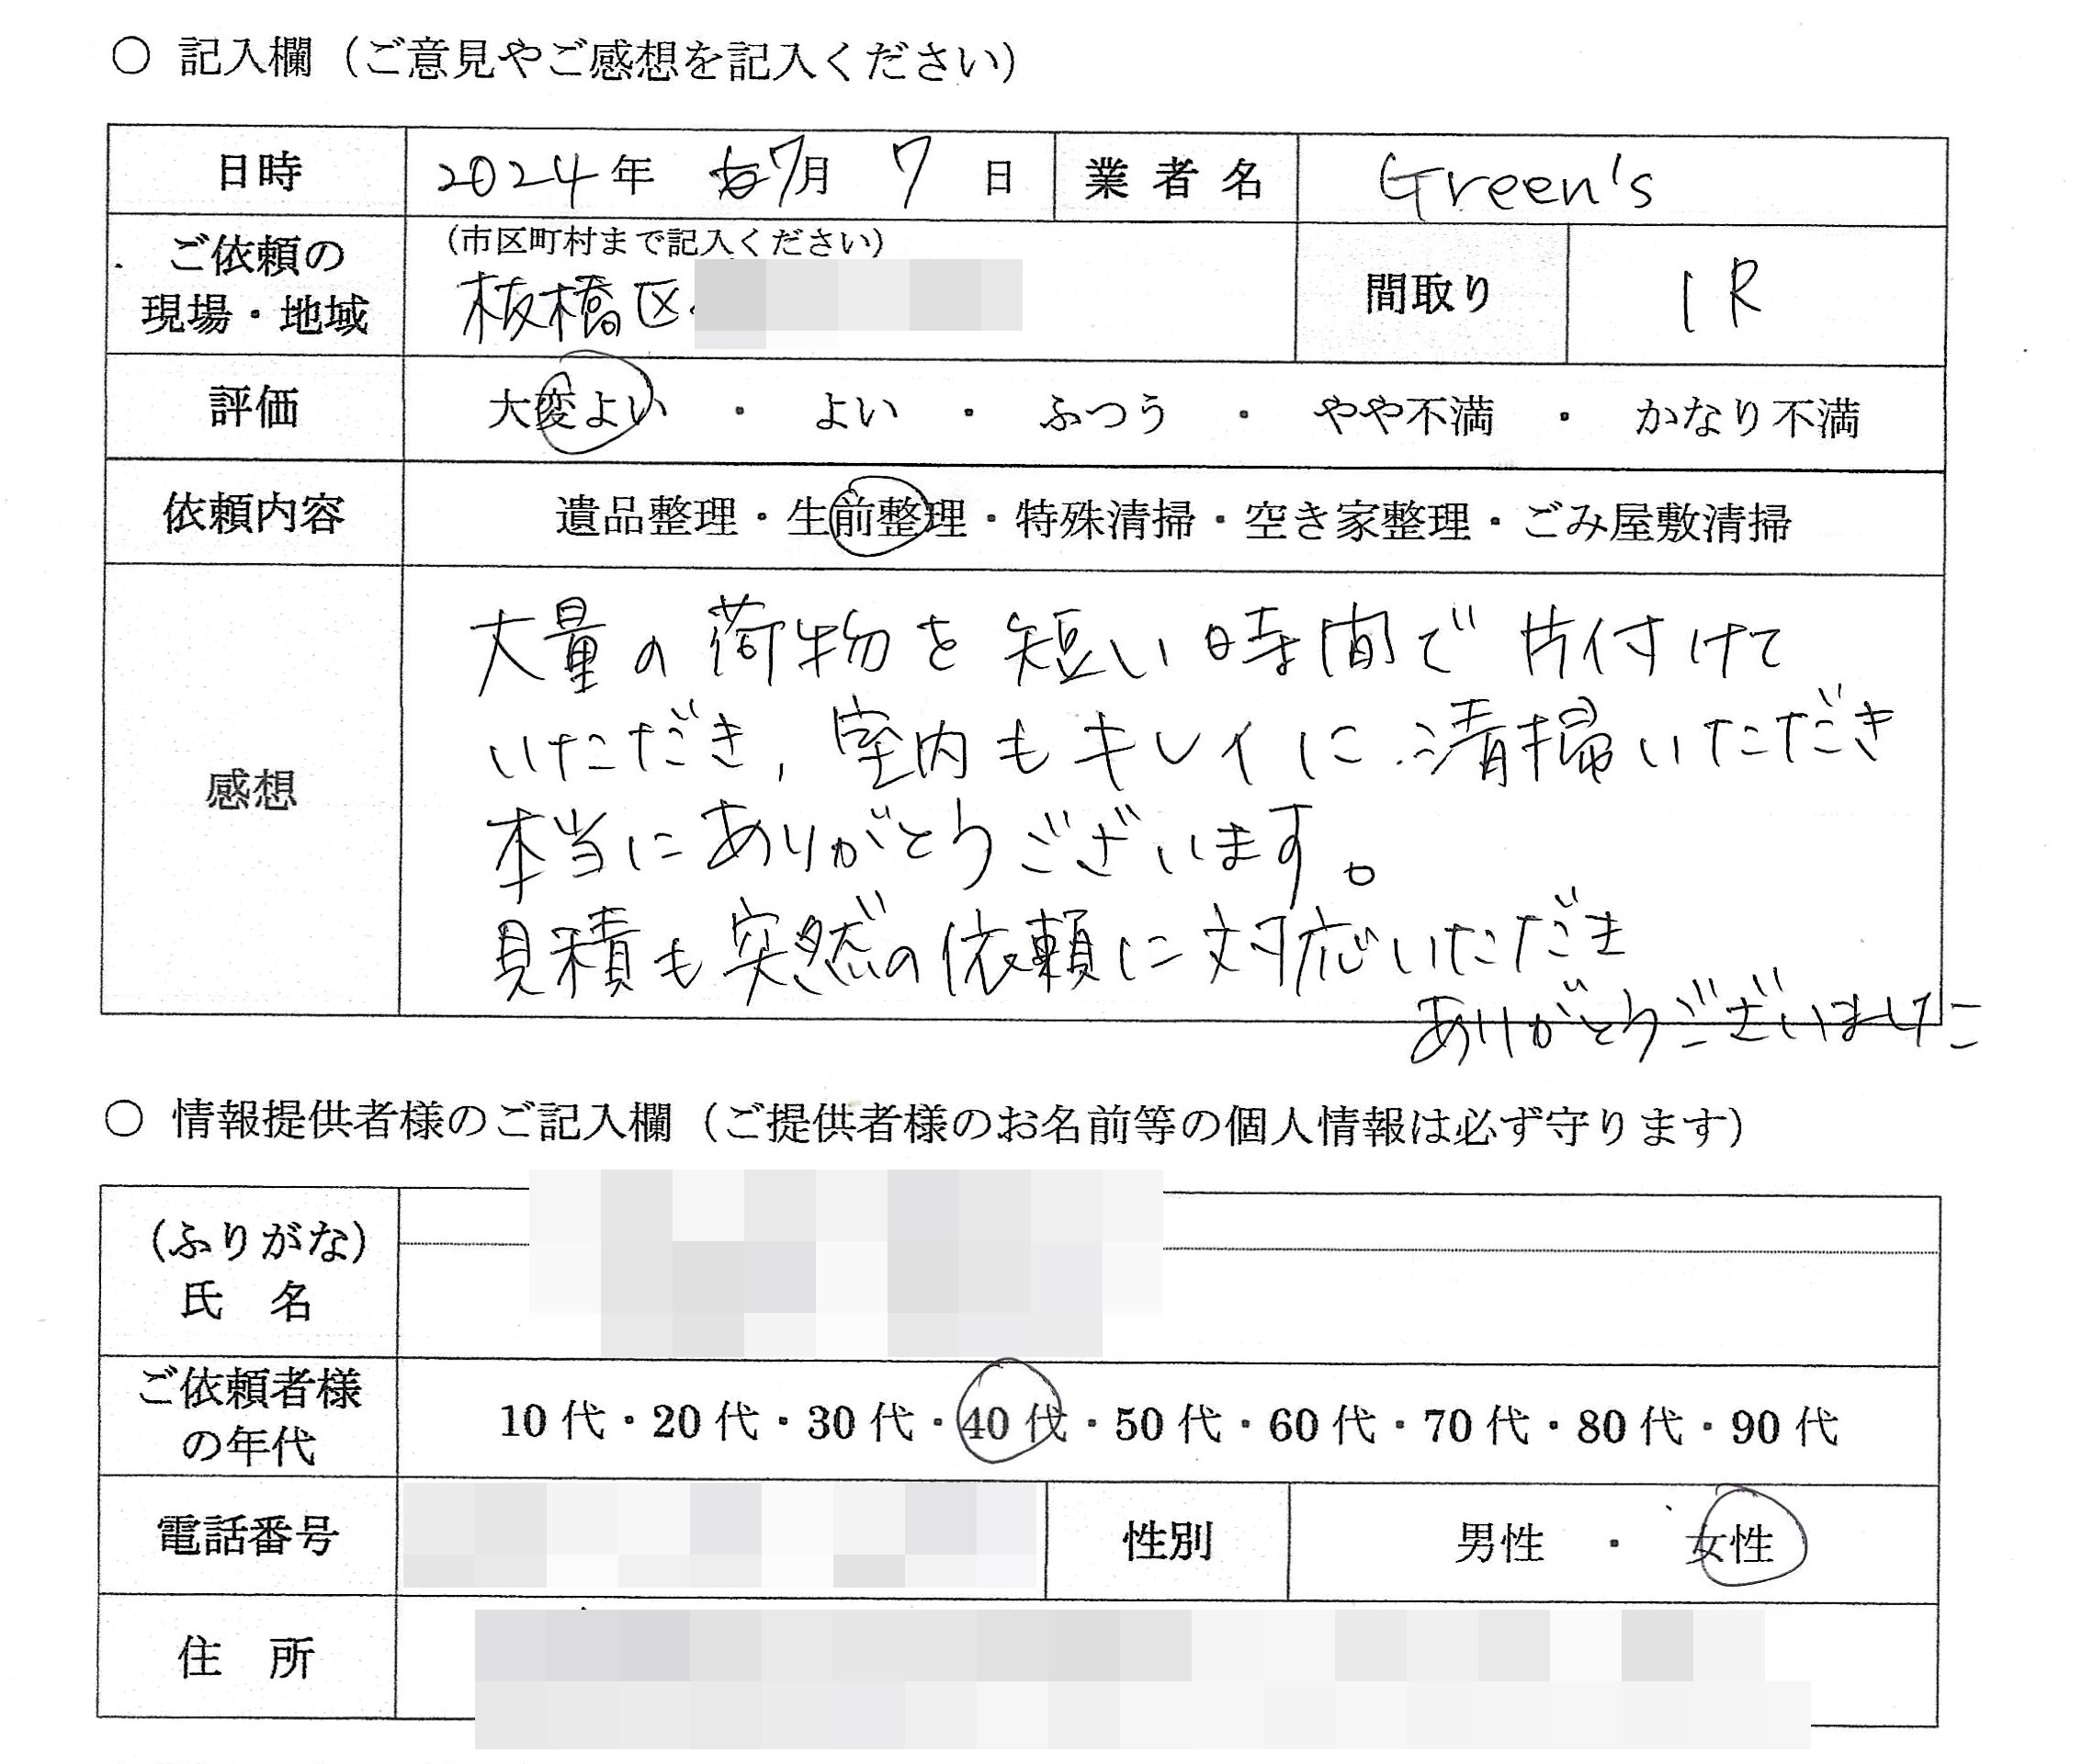 ○ 記入欄（ご意見やご感想を記入ください）
日時 2024年 7月 7 日 業者名 Green's
ご依頼の現場・地域 （市区町村まで記入ください） 間取り 1R
板橋区
評価 大変よい ・ よい ・ ふつう ・ やや不満 ・ かなり不満
依頼内容 遺品整理・生前整理・特殊清掃・空き家整理・ごみ屋敷清掃
感想
大量の荷物を短い時間で片付けて
いただき、室内もキレイに清掃いただき
本当にありがとうございます。
見積も突然の依頼に対応いただき
ありがとうございました
○ 情報提供者様のご記入欄（ご提供者様のお名前等の個人情報は必ず守ります）
（ふりがな）
氏 名
ご依頼者様の年代 10代・20代・30代・40代・50代・60代・70代・80代・90代
電話番号 性別 男性 ・ 女性
住 所